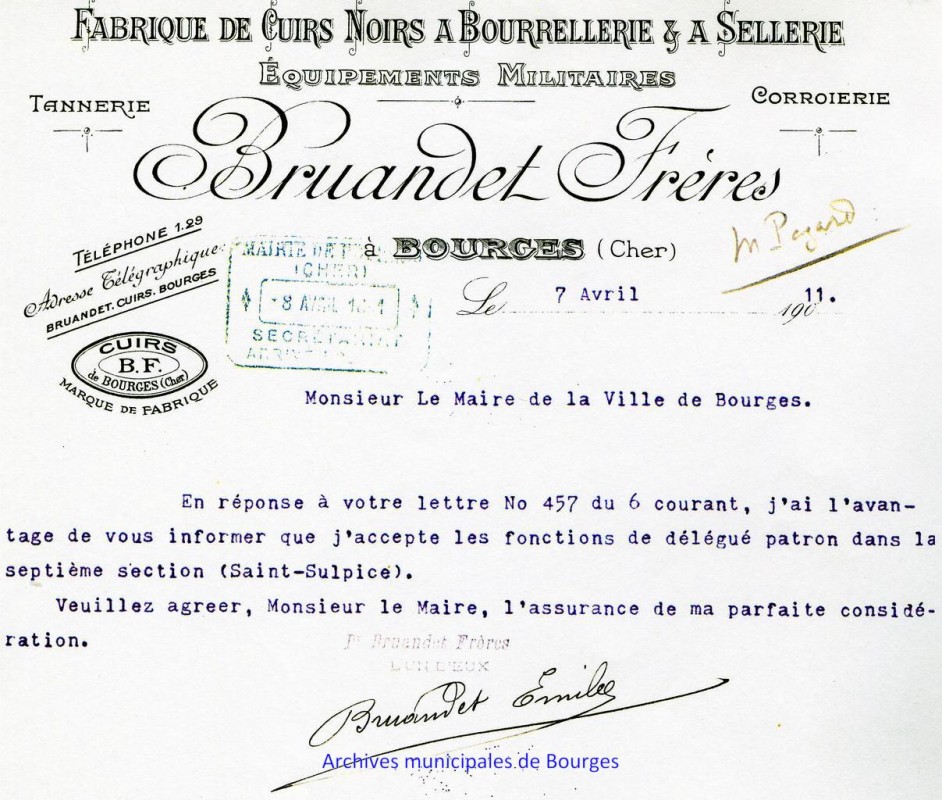 FABRIQUE DE CUIRS NOIRS A BOURRELLERIE & A SELLERIE
ÉQUIPEMENTS MILITAIRES
TANNERIE
CORROIERIE
Bruandet Frères
à BOURGES (Cher)
TÉLÉPHONE 1.29
Adresse Télégraphique:
BRUANDET, CUIRS, BOURGES
CUIRS
B.F.
de BOURGES (Cher)
MARQUE DE FABRIQUE
MAIRIE DE
(CHER)
8 AVRIL
SECRETARIAT
M
Le 7 Avril 190 11.
Monsieur Le Maire de la Ville de Bourges.
En réponse à votre lettre No 457 du 6 courant, j'ai l'avan-
tage de vous informer que j'accepte les fonctions de délégué patron dans la
septième section (Saint-Sulpice).
Veuillez agreer, Monsieur le Maire, l'assurance de ma parfaite considé-
ration.
Pr Bruandet Frères
L'UN D'EUX
Bruandet Emile
Archives municipales de Bourges